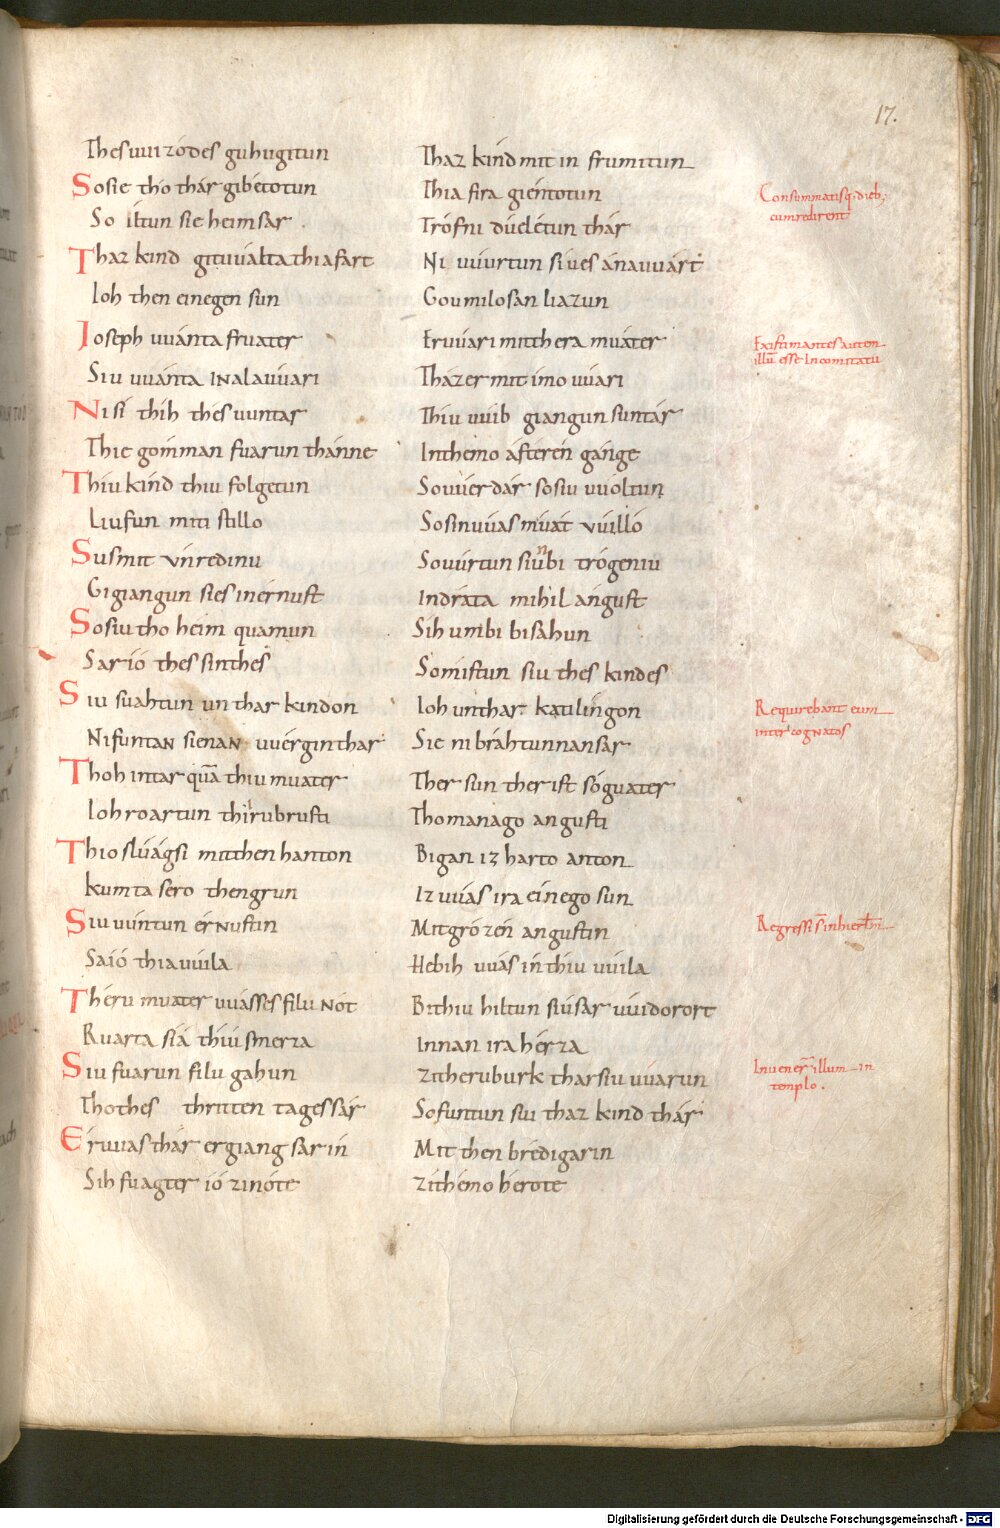 17.
Thes uuizodes gihugitun Thaz kind mit in frumitun
Sosie tho thár gibétotun Thia fira giéntotun
So íltun sie heimsar Trófni duelétun thár
Thaz kind gituualta thia fart Ni uuurtun sies ánauuárt
Ioh then einegen sun Goumilosan liazun
Ioseph uuánta fruater Er uuari mit thera muater
Siu uuánta in alauuari Tház er mit imo uuari
Nist thih thes uuntar Thiu uuib giangun suntár
Thie gómman fuarun thánne In themo áfteren gánge
Thiu kind thiu folgetun So uuer dár sosiu uuoltun
Liufun miti stillo So sin uuas múat uuilló
Sus mit únredinu So uúrtun siu bi trógeniu
n
Gigiangun sies in érnust In dráta mihil ángust
Sosiu tho heim quamun Sih umbi bisáhun
Sar ió thes sinthes So mistun siu thes kindes
Siu suahtun unthar kindon Ioh unthar kúnilíngon
Ni funtan sie nan uuérgin thar Sie ni bráhtun nan sar
Thoh intar quá thiu muater Ther sun ther ist sóguater
Ioh roartun thiru brusti Tho manago angusti
Thio sluág si mit then hanton Bigan iz harto anton
Kumta sero then grun Iz uuás ira éinego sun
Siu uúntun érnustin Mit grózén angustin
Saió thia uuila Hebih uuás in thiu uuila
Théru muater uuás ses filu nót Bithiu hiltun siu sár uuidorort
Ruarta siá thiú smerza Innan ira hérza
Siu fuarun filu gahun Zi theru burk thar siu uúarun
Tho thes thritten tages sár So funtun siu thaz kind thár
Er uuas thár er giang sar ín Mit then brédigarin
Sih fuagter ió zi nóte Zi thémo hérote
Consummatisq; dieb;
cum redirent
Existimantes autem
illū esse In comitatu
Requirebant eum
inter cognatos
Regressi s̄ in hierl̄m
Inuener̄ illum in
templo.
Digitalisierung gefördert durch die Deutsche Forschungsgemeinschaft - DFG